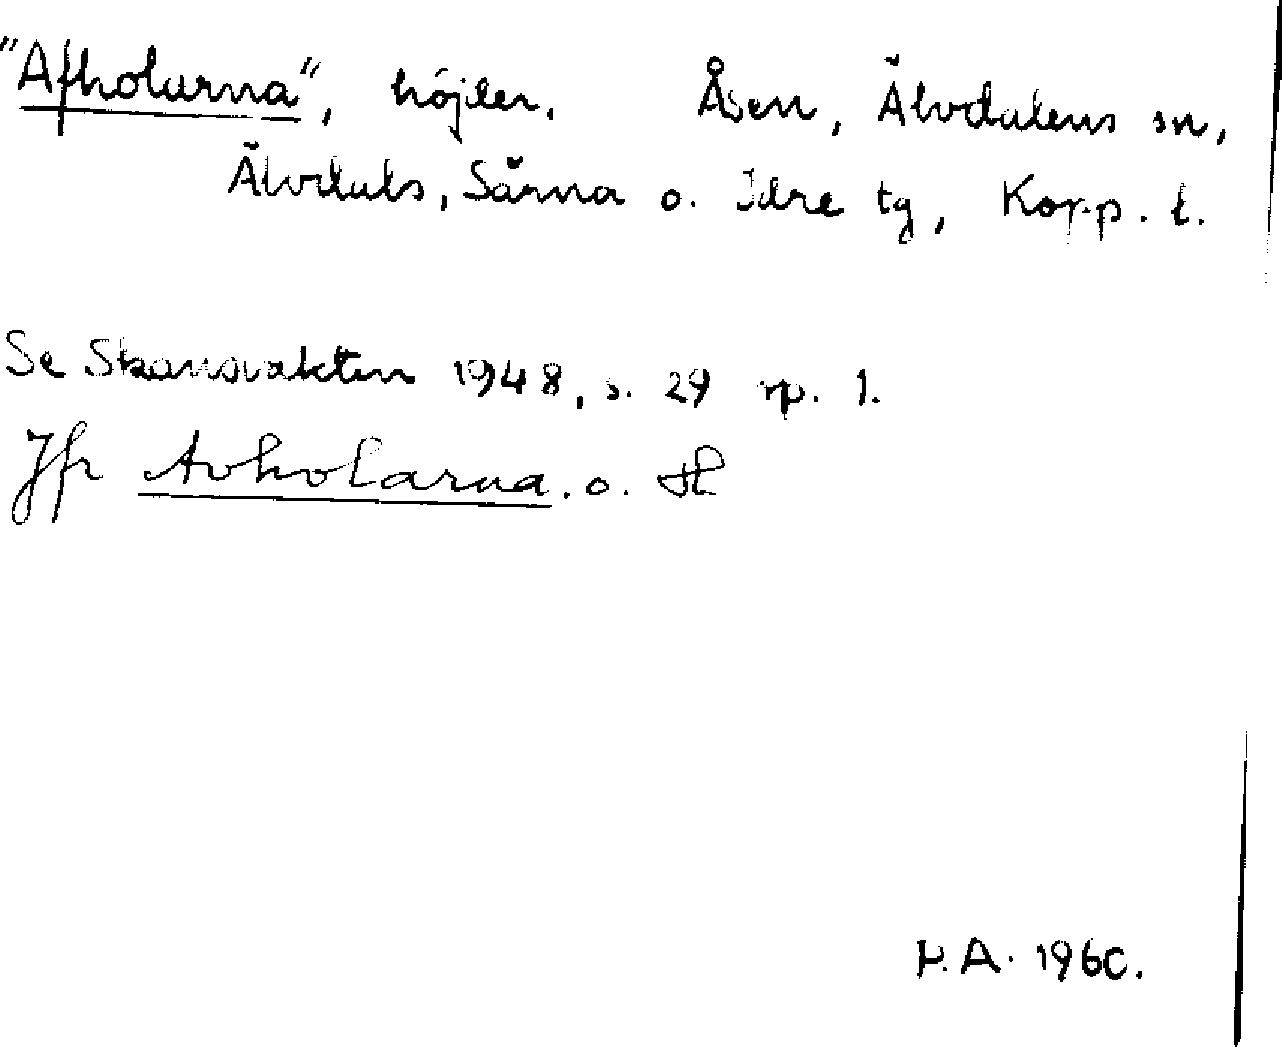 "Afholarna", höjder. Åsen, Älvdalens sn,
Älvdals, Särna o. Idre tg, Kopp. l.
Se Skansvakten 1948, s. 29 sp. 1.
Jfr Avholarna. o.
H.A. 1960.